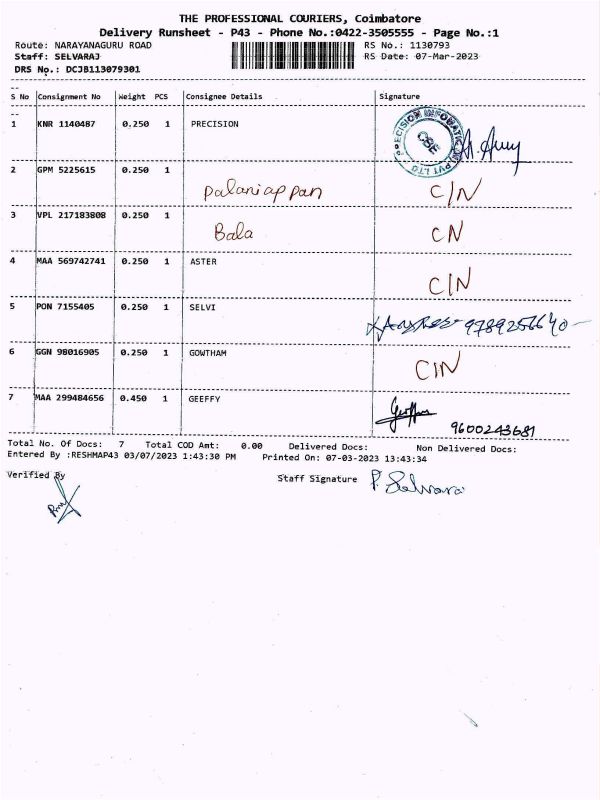 THE PROFESSIONAL COURIERS, Coimbatore
Delivery Runsheet - P43 - Phone No.:0422-3505555 - Page No.:1
Route: NARAYANAGURU ROAD RS No.: 1130793
Staff: SELVARAJ RS Date: 07-Mar-2023
DRS No.: DCJB113079301
--
S No Consignment No Weight PCS Consignee Details Signature
--
1 KNR 1140487 0.250 1 PRECISION
PRECISION INFOMATIC (M) PVT LTD
CBE
2 GPM 5225615 0.250 1
Palaniappan C/N
3 VPL 217183808 0.250 1
Bala CN
4 MAA 569742741 0.250 1 ASTER
C/N
5 PON 7155405 0.250 1 SELVI
9789256640
6 GGN 98016905 0.250 1 GOWTHAM
C/N
7 MAA 299484656 0.450 1 GEEFFY
9600243681
Total No. Of Docs: 7 Total COD Amt: 0.00 Delivered Docs: Non Delivered Docs:
Entered By :RESHMAP43 03/07/2023 1:43:30 PM Printed On: 07-03-2023 13:43:34
Verified By Staff Signature P. Selvaraj